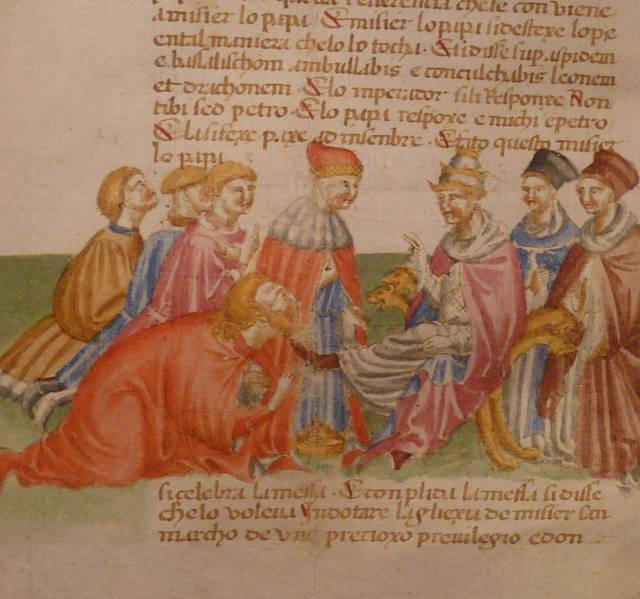 reverencia che se con viene
a misier lo papa. E misier lo papa si destexe lo pe
en tal maniera che lo lo tocha. E si disse sup. aspidem
e basalischom ambullabis e conculchabis leonem
et drachonem. E lo inperador si li responxe Non
tibi sed petro. E lo papa respoxe e michi e petro
E la si fexe paxe ad insenbre. E fato questo misier
lo papa
si celebra la messa. E conplida la messa si disse
che lo voleva indotare la gliexia de misier san
marcho de uno precioxo previlegio e don